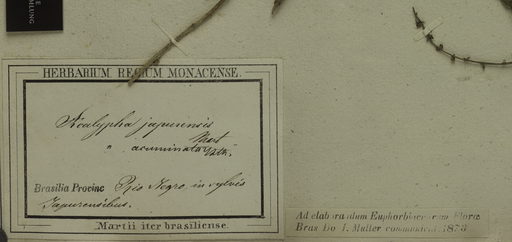 MLUNG
HERBARIUM REGIUM MONACENSE.
Acalypha japurensis
" acuminata Mart
Brasilia Provinc Rio Negro, in sylvis
Japurensibus.
Martii iter brasiliense.
Ad elaborandum Euphorbiacearum Florae
Bras Do J. Muller communicat. 1873